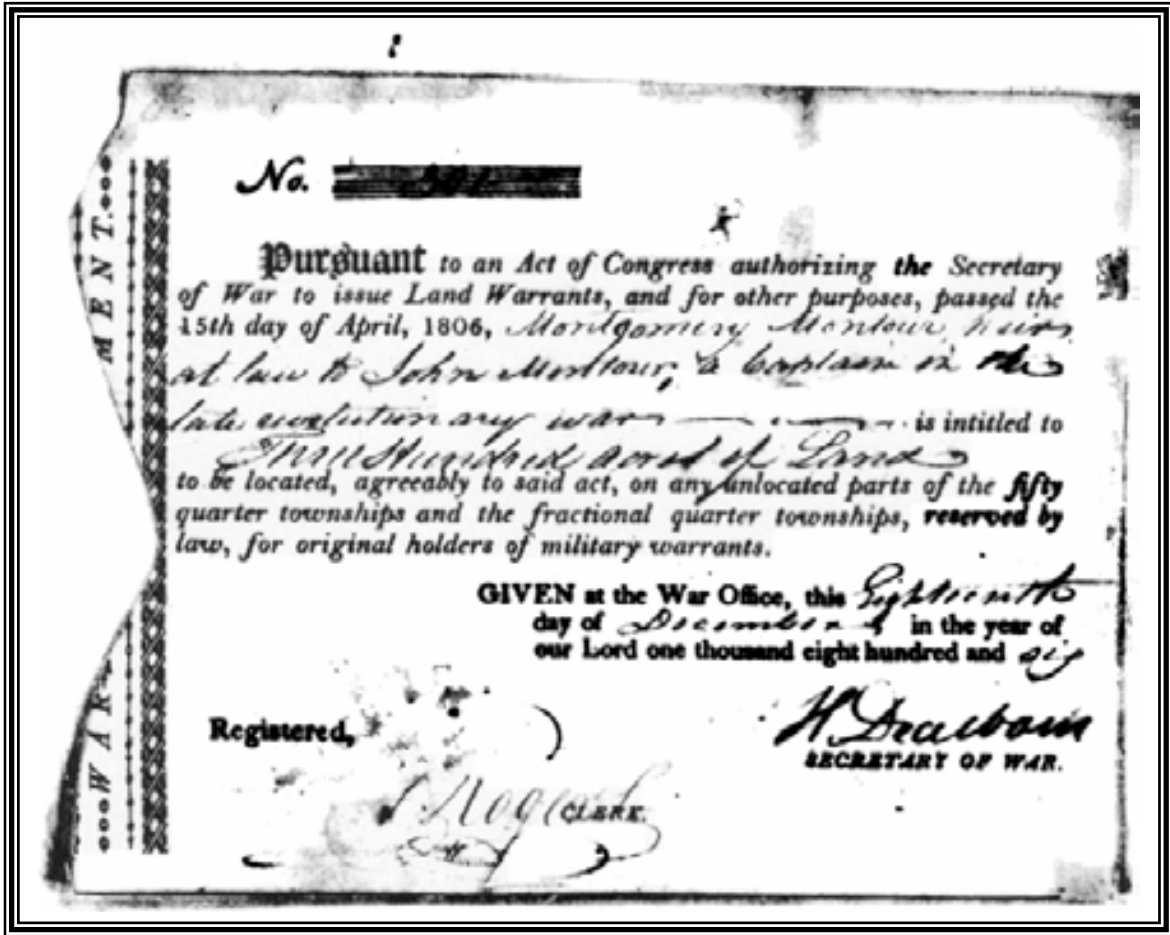 No.
Pursuant to an Act of Congress authorizing the Secretary
of War to issue Land Warrants, and for other purposes, passed the
15th day of April, 1806, Montgomery Montour, heir
at law to John Montour, a Captain in the
late revolutionary war is intitled to
Three Hundred acres of Land
to be located, agreeably to said act, on any unlocated parts of the fifty
quarter townships and the fractional quarter townships, reserved by
law, for original holders of military warrants.
GIVEN at the War Office, this Eighteenth
day of December in the year of
our Lord one thousand eight hundred and six
Registered,
H Dearborn
SECRETARY OF WAR.
CLERK.
WAR
MENT.